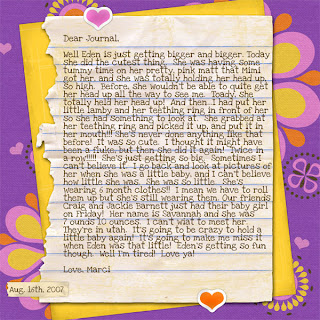 Dear Journal,
Well Eden is just getting bigger and bigger. Today
she did the cutest thing. She was having some
tummy time on her pretty, pink matt that Mimi
got her, and she was totally holding her head up.
So high. Before, she wouldn't be able to quite get
her head up all the way to see me. Toady, she
totally held her head up! And then, I had put her
little lamby and her teething ring in front of her
so she had something to look at. She grabbed at
her teething ring and picked it up, and put it in
her mouth!!! She's never done anything like that
before! It was so cute. I thought it might have
been a fluke, but then she did it again! Twice in
a row!!!!! She's just getting so big. Sometimes I
can't believe it. I go back and look at pictures of
her when she was a little baby, and I can't believe
how little she was. She was so little. She's
wearing 6 month clothes!! I mean we have to roll
them up but she's still wearing them. Our friends
Craig and Jackie Barnett just had their baby girl
on Friday! Her name is Savannah and she was
7 ounds 10 ounces. I can't wiat to meet her.
They're in utah. It's going to be crazy to hold a
little baby again! It's going to make me miss it
when Eden was that little! Eden's getting so fun
though. Well I'm tired! Love ya!
Love, Marci
Aug. 16th, 2007